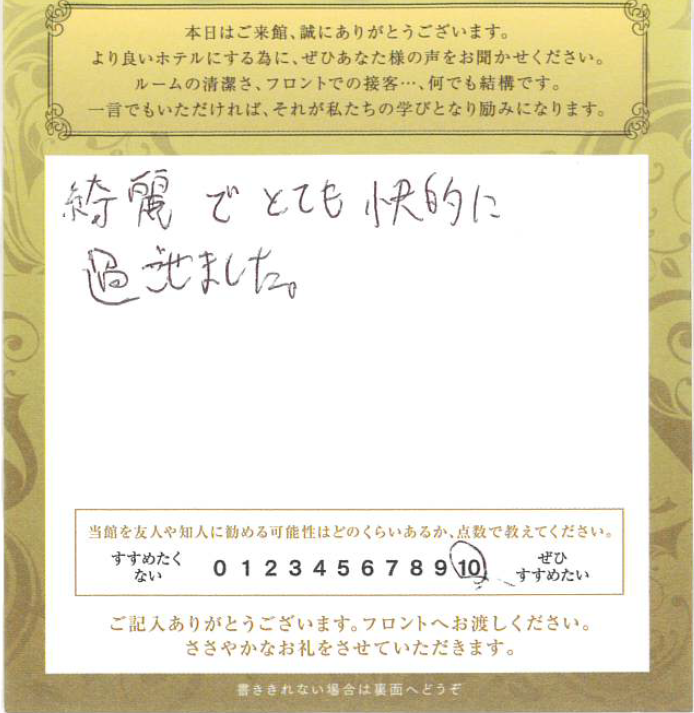 本日はご来館、誠にありがとうございます。
より良いホテルにする為に、ぜひあなた様の声をお聞かせください。
ルームの清潔さ、フロントでの接客…、何でも結構です。
一言でもいただければ、それが私たちの学びとなり励みになります。
綺麗でとても快的に
過ごせました。
当館を友人や知人に勧める可能性はどのくらいあるか、点数で教えてください。
すすめたく
ない
0 1 2 3 4 5 6 7 8 9 10
ぜひ
すすめたい
ご記入ありがとうございます。フロントへお渡しください。
ささやかなお礼をさせていただきます。
書ききれない場合は裏面へどうぞ